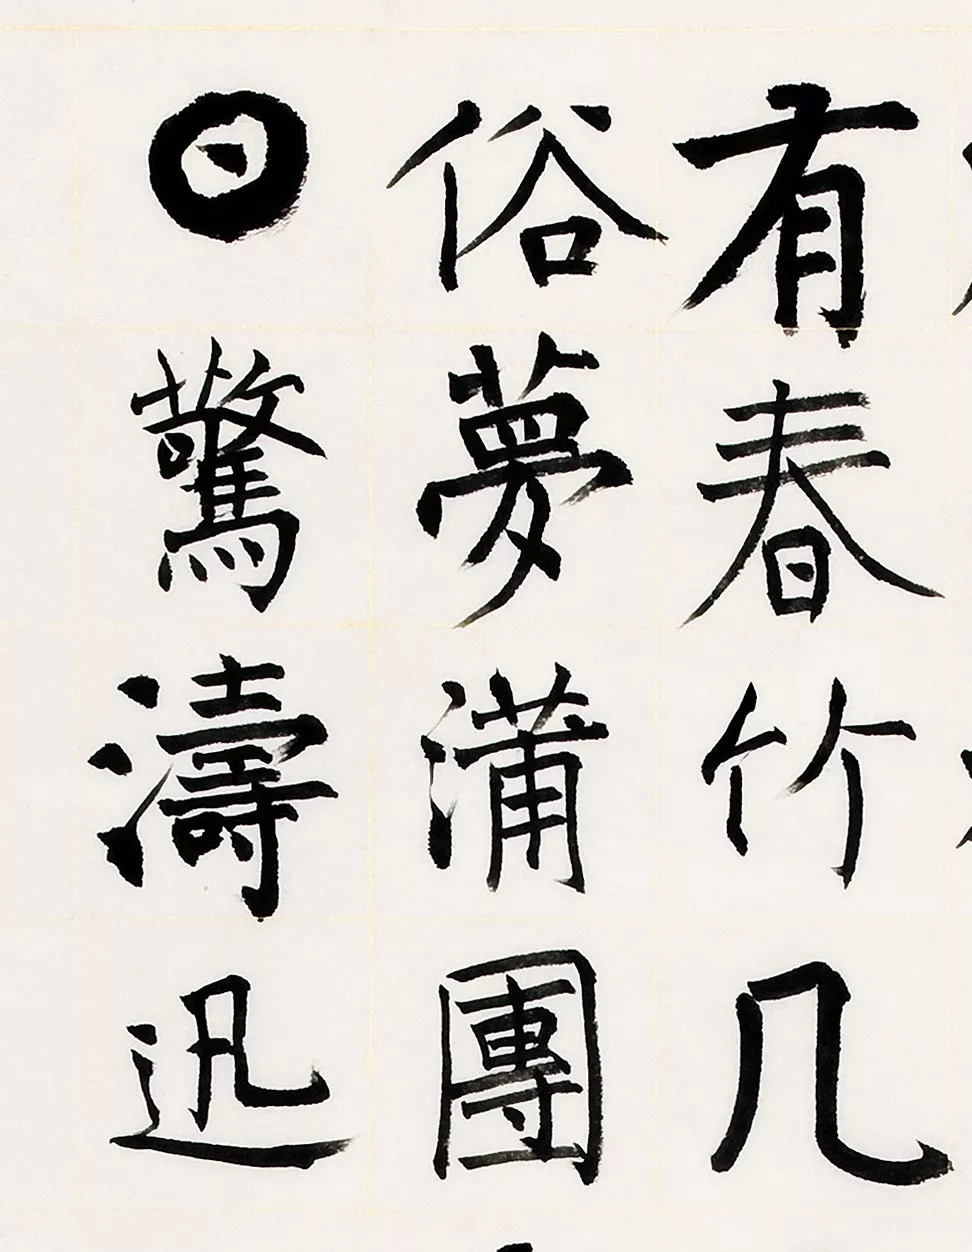 有春竹几
俗夢蒲團
日驚濤迅